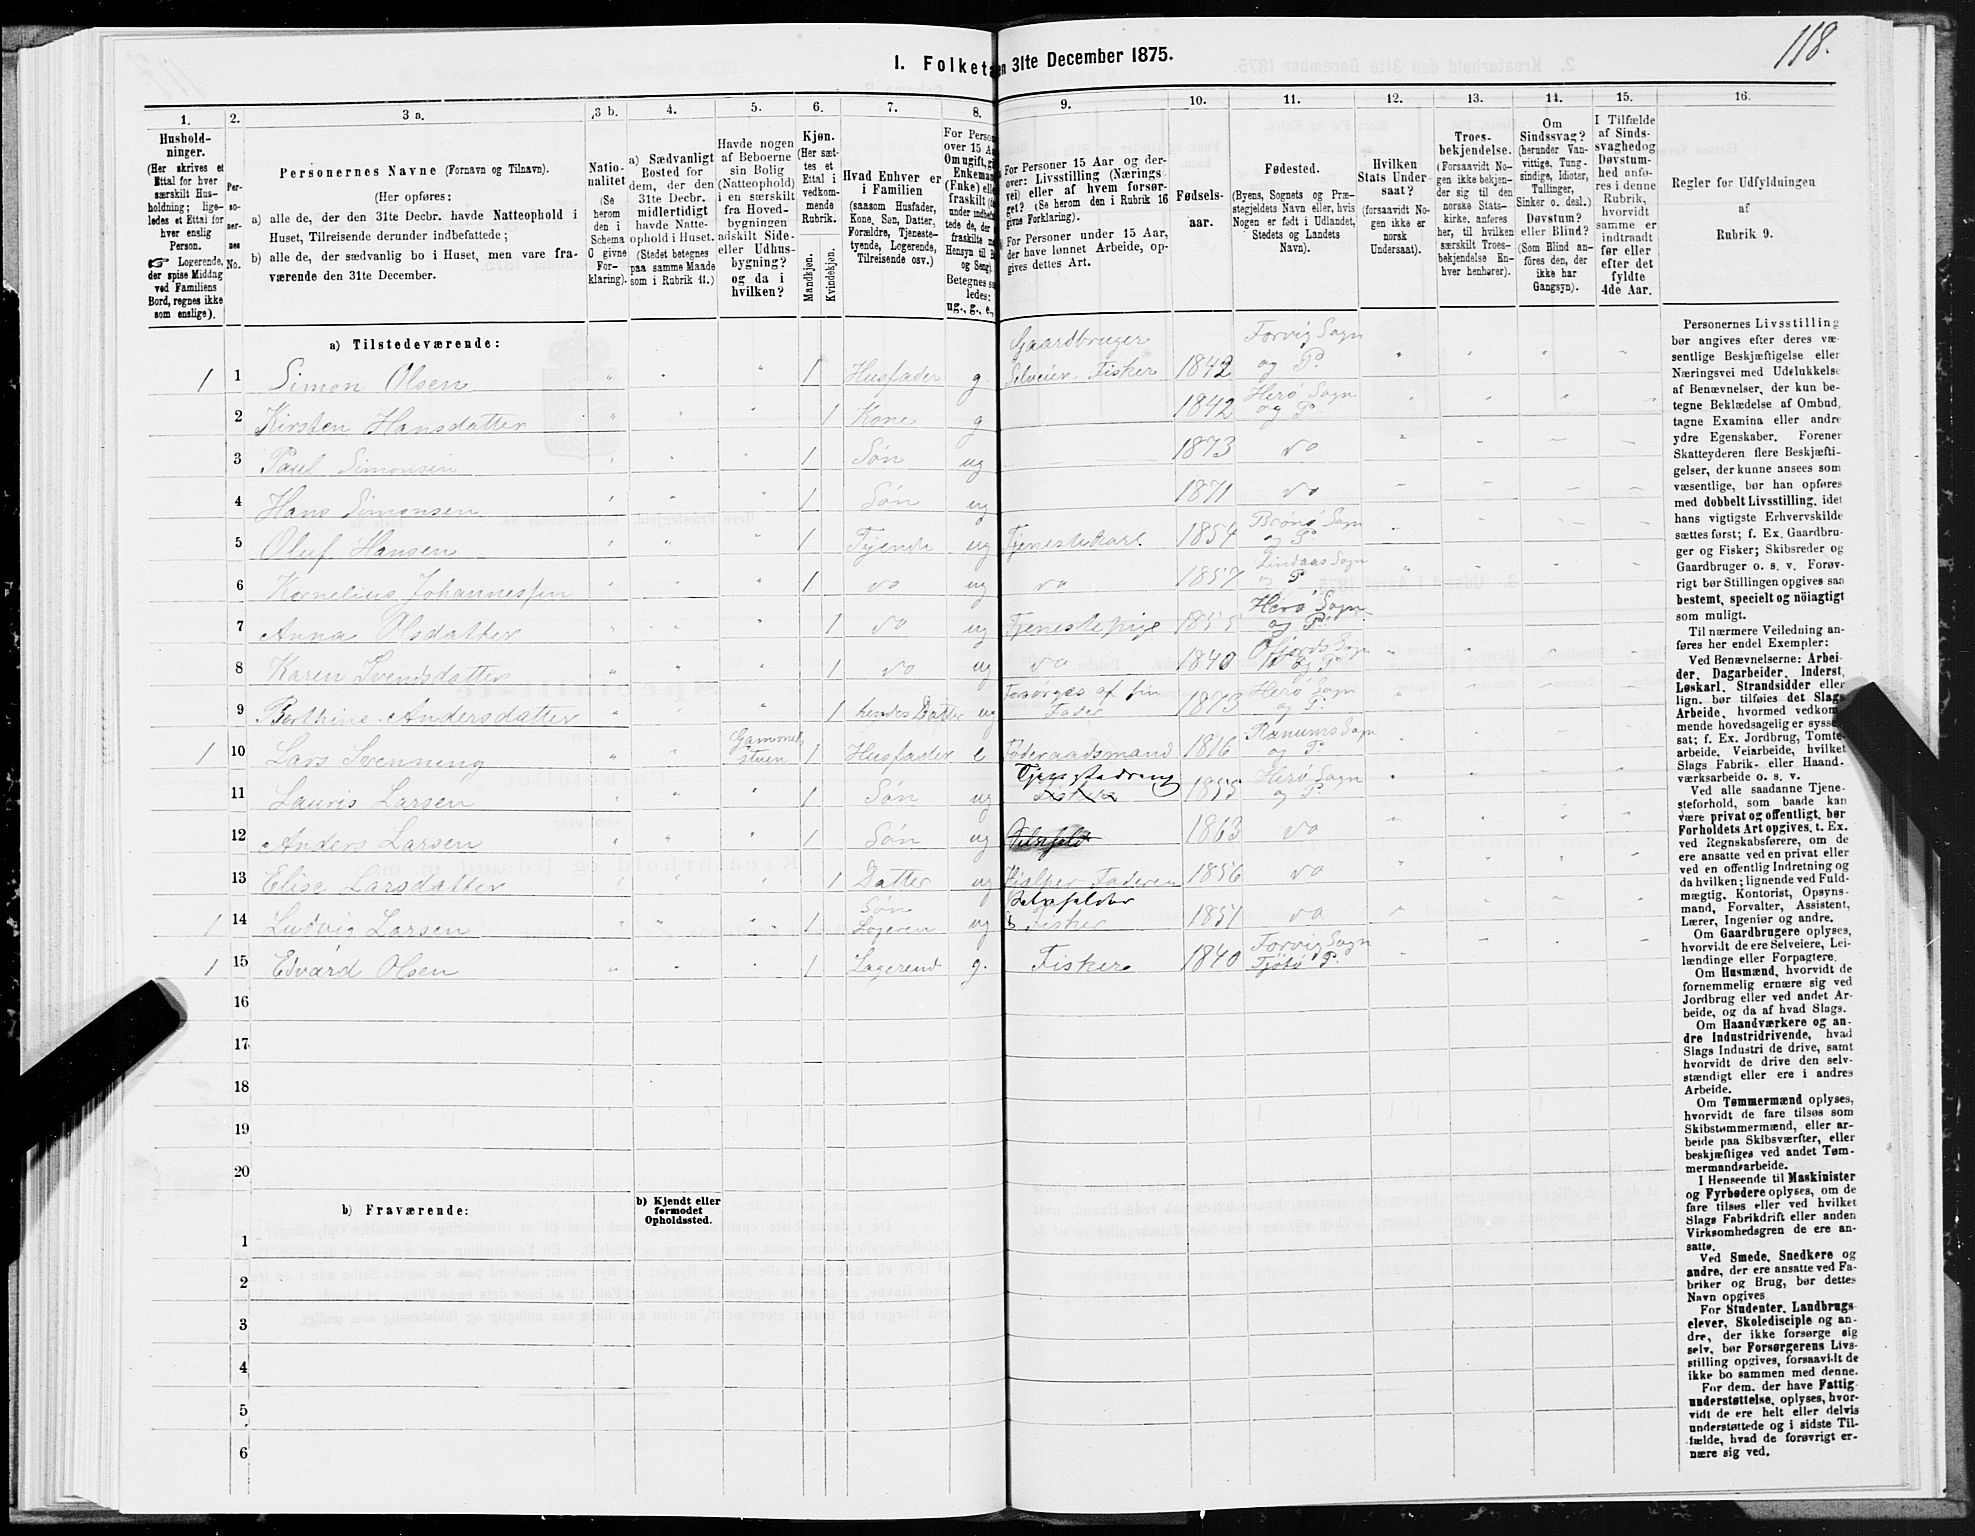 118.
1. Folketa en 31te December 1875.
1. 2. 3 a. 3 b. 4. 5. 6. 7. 8. 9. 10. 11. 12. 13. 14. 15. 16.
Hushold-
ninger.
(Her skrives et
Ettal for hver
særskilt Hus-
holdning; lige-
ledes et Ettal for
hver enslig
Person.
☞ Logerende,
der spise Middag
ved Familiens
Bord, regnes ikke
som enslige).
Per-
so-
ner-
nes
No.
Personernes Navne (Fornavn og Tilnavn).
(Her opføres:
a) alle de, der den 31te Decbr. havde Natteophold i
Huset, Tilreisende derunder indbefattede;
b) alle de, der sædvanlig bo i Huset, men vare fra-
værende den 31te December.
Natio-
nalitet
(Se
herom
den i
Schema
C givne
For-
klaring).
a) Sædvanligt
Bosted for
dem, der den
31te Decbr.
midlertidigt
havde Natte-
ophold i Huset.
(Stedet betegnes
paa samme Maade
som i Rubrik 11.)
Havde nogen
af Beboerne
sin Bolig
(Natteophold)
i en særskilt
fra Hoved-
bygningen
adskilt Side-
eller Udhus-
bygning?
og da i
hvilken?
Kjøn.
(Her sæt-
tes et
Ettal i
vedkom-
mende
Rubrik.
Mandkjøn.
Kvindekjøn.
Hvad Enhver er
i Familien
(saasom Husfader,
Kone, Søn, Datter,
Forældre, Tjeneste-
tyende, Logerende,
Tilreisende osv.)
For Perso
over 15 Aa
Om ugift, gi
Enkeman
(Fuke) elle
fraskilt (
under indbefat
tede de, der e
fraskilte m
Hensyn til B
og Seng).
Betegnes sa
ledes:
ug., g., e.,
For Personer 15 Aar og der-
over: Livsstilling (Nærings
vei) eller af hvem forsør-
get? (Se herom den i Rubrik 16
givne Forklaring).
For Personer under 15 Aar,
der have lønnet Arbeide, op-
gives dettes Art.
Fødsels-
aar.
Fødested.
(Byens, Sognets og Præ-
stegjeldets Navn eller, hvis
Nogen er født i Udlandet,
Stedets og Landets
Navn).
Hvilken
Stats Under-
saat?
(forsaavidt No-
gen ikke er
norsk
Undersaat).
Troes-
bekjendelse.
(Forsaavidt No-
gen ikke bekjen-
der sig til den
norske Stats-
kirke, anføres
her, til hvilken
særskilt Troes-
bekjendelse En-
hver henhører).
Om
Sindssvag?
(herunder Van-
vittige, Tung-
sindige, Idioter,
Tullinger,
Sinker o. desl.)
Døvstum?
eller Blind?
(Som Blind an-
føres den, der
ikke har
Gangsyn).
I Tilfælde
af Sinds-
svaghed og
Døvstum-
hed anfø-
res i denne
Rubrik,
hvorvidt
samme er
indtraadt
før eller
efter det
fyldte
4de Aar.
Regler for Udfyldningen
af
Rubrik 9.
a) Tilstedeværende:
1 1 Simon Olsen 1 Husfader g. Gaardbruger Selveier, Fisker 1842 Forvig Sogn og P.
2 Kirsten Hansdatter 1 Kone g 1842 Herø Sogn og P.
3 Paul Simonsen 1 Søn ug 1873 do
4 Hans Simonsen 1 Søn ug 1871 do
5 Oluf Hansen 1 Tjende ug Tjenestekarl 1854 Brønø Sogn og P.
6 Kornelius Johannessen 1 do ug do 1857 Lindaas Sogn og P
7 Anna Olsdatter 1 do ug Tjenestepige 1855 Herø Sogn og P.
8 Karen Svendsdatter 1 do ug do 1840 og P.
9 Berthine Andersdatter 1 hendes Datter ug Forsørges af sin Fader 1873 Herø Sogn og P.
1 10 Lars Svenning Gammelstuen 1 Husfader e Føderaadsmand 1816 Ranums Sogn og P.
11 Lauris Larsen 1 Søn ug Tjenestedreng Fisker 1855 Herø Sogn og P.
12 Anders Larsen 1 Søn ug 1863 do
13 Elise Larsdatter 1 Datter ug Hjælper Faderen 1856 do
1 14 Ludvig Larsen 1 Søn Logeren ug Fisker 1851 do
1 15 Edvard Olsen 1 Logerend g. Fisker 1840 Forvig Sogn Tjøtø P.
16
17
18
19
20
b) Fraværende:
b) Kjendt eller
formodet
Opholdssted.
1
2
3
4
5
6
Personernes Livsstilling
bør angives efter deres væ-
sentlige Beskjæftigelse eller
Næringsvei med Udelukkelse
af Benævnelser, der kun be-
tegne Beklædelse af Ombud,
tagne Examina eller andre
ydre Egenskaber. Forener
Skatteyderen flere Beskjæfti-
gelser, der kunne ansees som
væsentlige, bør han opføres
med dobbelt Livsstilling, idet
hans vigtigste Erhvervskilde
sættes først; f. Ex. Gaardbru-
ger og Fisker; Skibsreder og
Gaardbruger o. s. v. Forøv-
rigt bør Stillingen opgives saa
bestemt, specielt og nöiagtigt
som muligt.
Til nærmere Veiledning an-
føres her endel Exempler:
Ved Benævnelserne: Arbei-
der, Dagarbeider, Inderst,
Løskarl, Strandsidder eller
lign. bør tilføies det Slags
Arbeide, hvormed vedkom-
mende hovedsagelig er syssel-
sat; f. Ex. Jordbrug, Tomte-
arbeide, Veiarbeide, hvilket
Slags Fabrik- eller Haand-
værksarbeide o. s. v.
Ved alle saadanne Tjene-
steforhold, som baade kan
være privat og offentligt, bør
Forholdets Art opgives, t. Ex.
ved Regnskabsførere, om de
ere ansatte ved en privat eller
ved en offentlig Indretning og
da hvilken; lignende ved Fuld-
mægtig, Kontorist, Opsyns-
mand, Forvalter, Assistent,
Lærer, Ingeniør og andre.
Om Gaardbrugere oplyses,
hvorvidt de ere Selveiere, Lei-
lændinge eller Forpagtere.
Om Husmænd, hvorvidt de
fornemmelig ernære sig ved
Jordbrug eller ved andet Ar-
beide, og da af hvad Slags.
Om Haandværkere og an-
dre Industridrivende, hvad
Slags Industri de drive, samt
hvorvidt de drive den selv-
stændigt eller ere i andres
Arbeide.
Om Tømmermænd oplyses,
hvorvidt de fare tilsøs som
Skibstømmermænd, eller ar-
beide paa Skibsværfter, eller
beskjæftiges ved andet Tøm-
mermandsarbeide.
I Henseende til Maskinister
og Fyrbødere oplyses, om de
fare tilsøs eller ved hvilket
Slags Fabrikdrift eller anden
Virksomhedsgren de ere an-
satte.
Ved Smede, Snedkere og
andre, der ere ansatte ved Fa-
briker og Brug, bør dettes
Navn opgives
For Studenter, Landbrugs-
elever, Skoledisciple og an-
dre, der ikke forsørge sig
selv, bør Forsørgerens Livs-
stilling opgives, forsaavidt de
ikke bo sammen med denne.
For dem, der have Fattig-
understøttelse, oplyses, hvor-
vidt de ere helt eller delvis
understøttede og i sidste Til-
fælde, hvad de forøvrigt er-
nære sig ved.